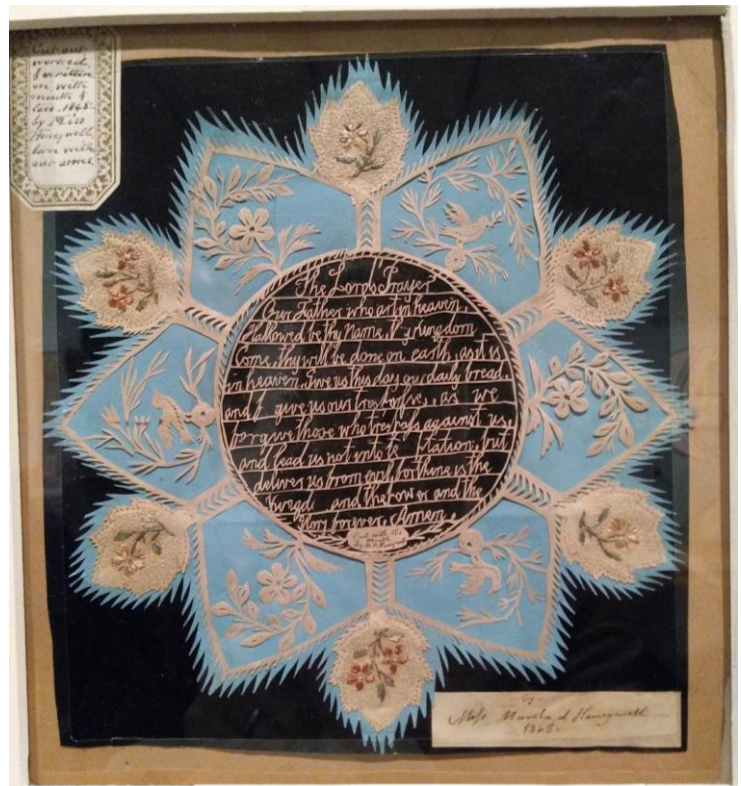 Cut out
worked
& written
on with
mouth &
toes. 1845-
by Miss
Honeywell
born with
out arms.
The Lords Prayer
Our Father who art in heaven
Hallowed be thy Name, Thy kingdom
Come, thy will be done on earth, as it is
in heaven, Give us this day our daily bread,
and f give us our trespasses, as we
forgive those who trespass against us,
and lead us not into te tation, but
deliver us from evil, for thine is the
Kingd and the Power and the
Glory forever, Amen,
Cut with the
Mouth
by
Miss Martha A Honeywell
1845-